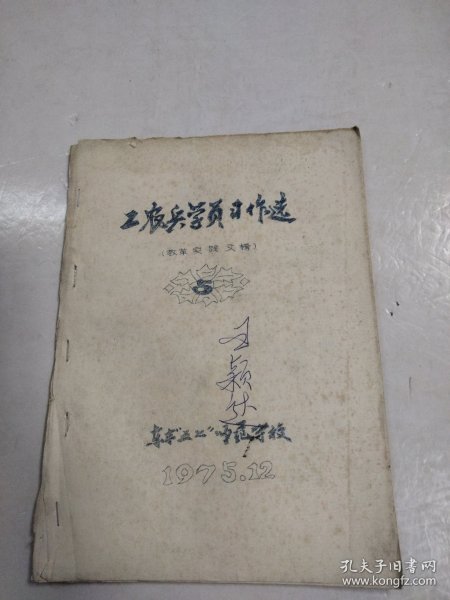 工农兵学员习作选
(教革实践文辑)
5
王颖
阜市"五七"师范学校
1975.12
孔夫子旧书网
www.kongfz.com